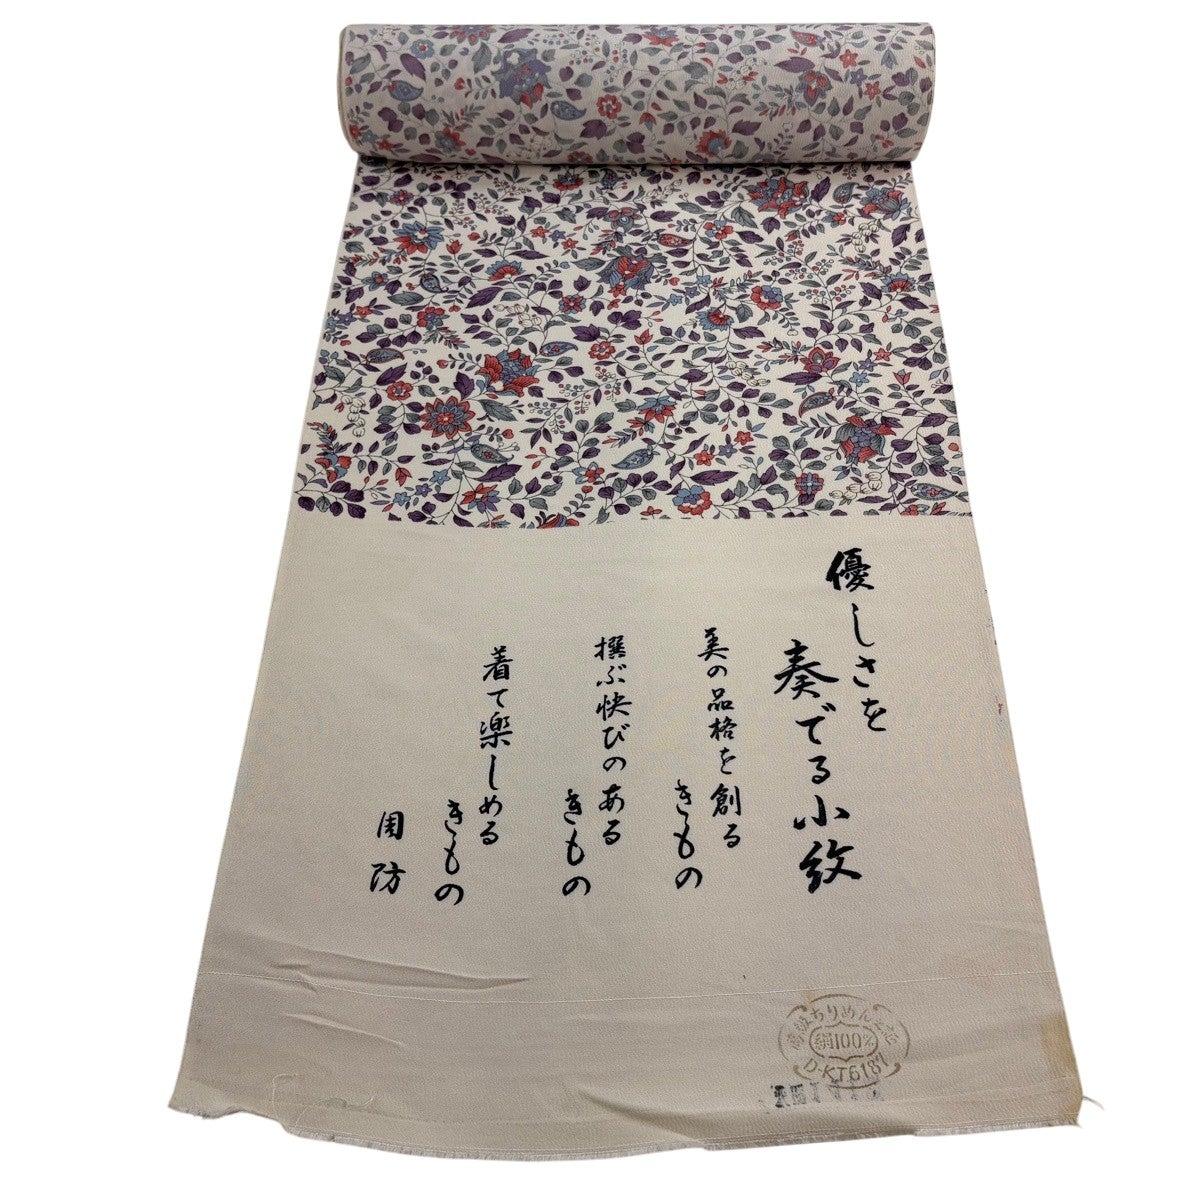 優しさを
奏でる小紋
美の品格を創る
きもの
撰ぶ快びのある
きもの
着て楽しめる
きもの
周防
ちりめん
絹100%
D-KT6187